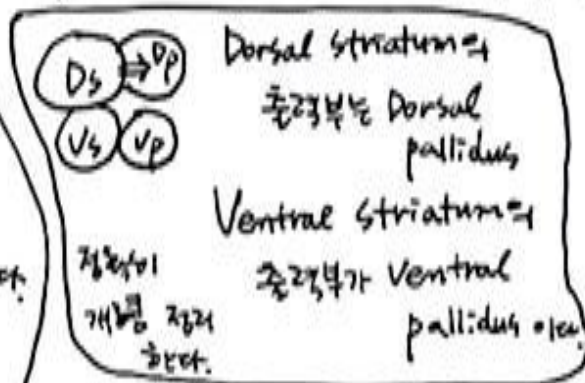 Ds ⇒ Dp
Vs Vp
Dorsal striatum의
출력부는 Dorsal
pallidus
Ventral striatum의
출력부가 Ventral
pallidus 이다.
정확히
개념 정리
한다.
다.